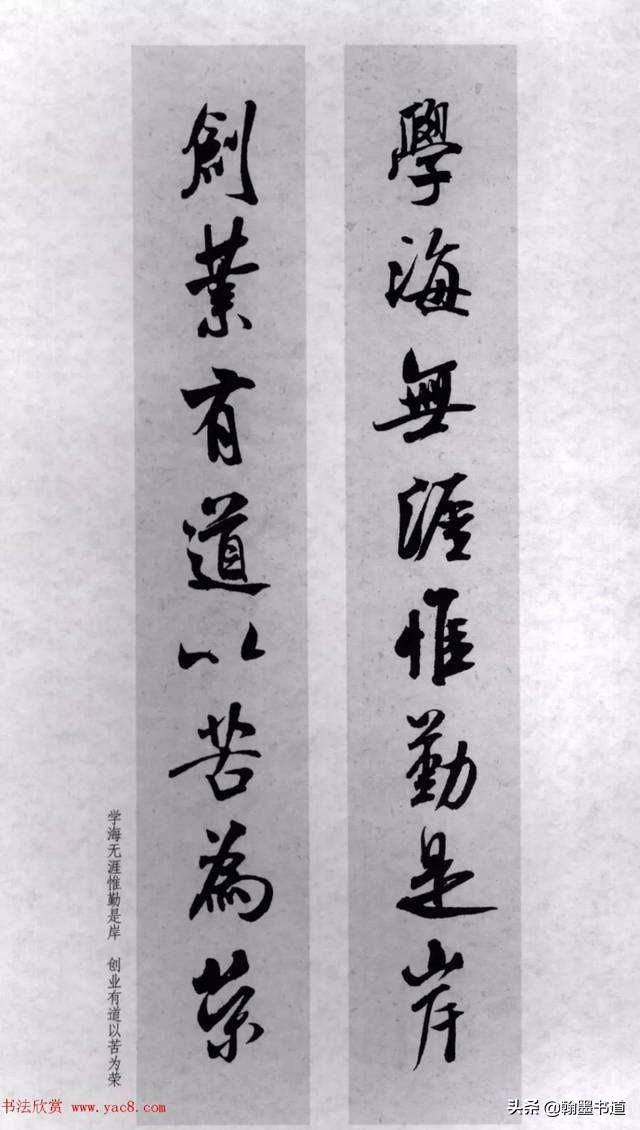 學海無涯惟勤是岸
創業有道以苦為榮
学海无涯惟勤是岸 创业有道以苦为荣
书法欣赏 www.yac8.com
头条 @翰墨书道